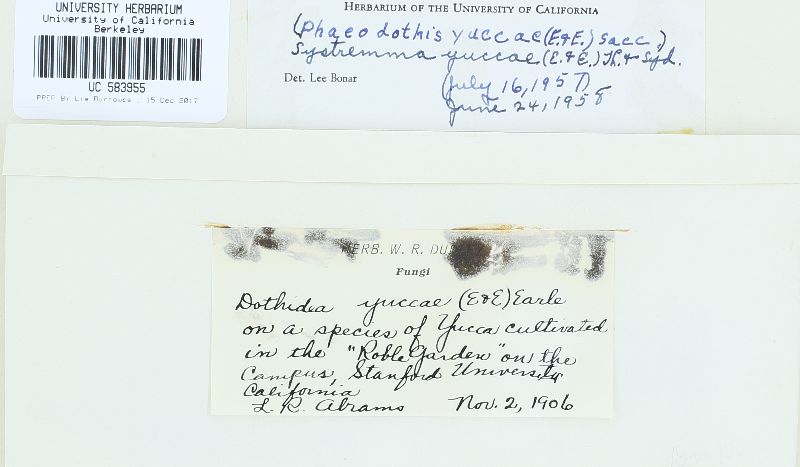 UNIVERSITY HERBARIUM
University of California
Berkeley
UC 583955
PREP BY Lia Burrowes , 15 Dec 2017
HERBARIUM OF THE UNIVERSITY OF CALIFORNIA
(Phaeodothis yuccae (E.&E.) Sacc.)
Systremma yuccae (E.&E.) Th. & Syd.
Det. Lee Bonar
(July 16, 1957)
June 24, 1958
HERB. W. R.
Fungi
Dothidea yuccae (E&E) Earle
on a species of Yucca cultivated
in the "Roble Garden" on the
Campus, Stanford University
California
L. R. Abrams Nov. 2, 1906